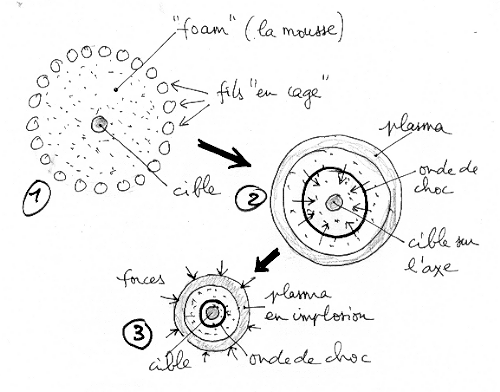 "foam" (la mousse)
fils "en cage"
cible
1
plasma
onde de
choc
2
cible sur
l'axe
forces
plasma
en implosion
3
cible
onde de choc